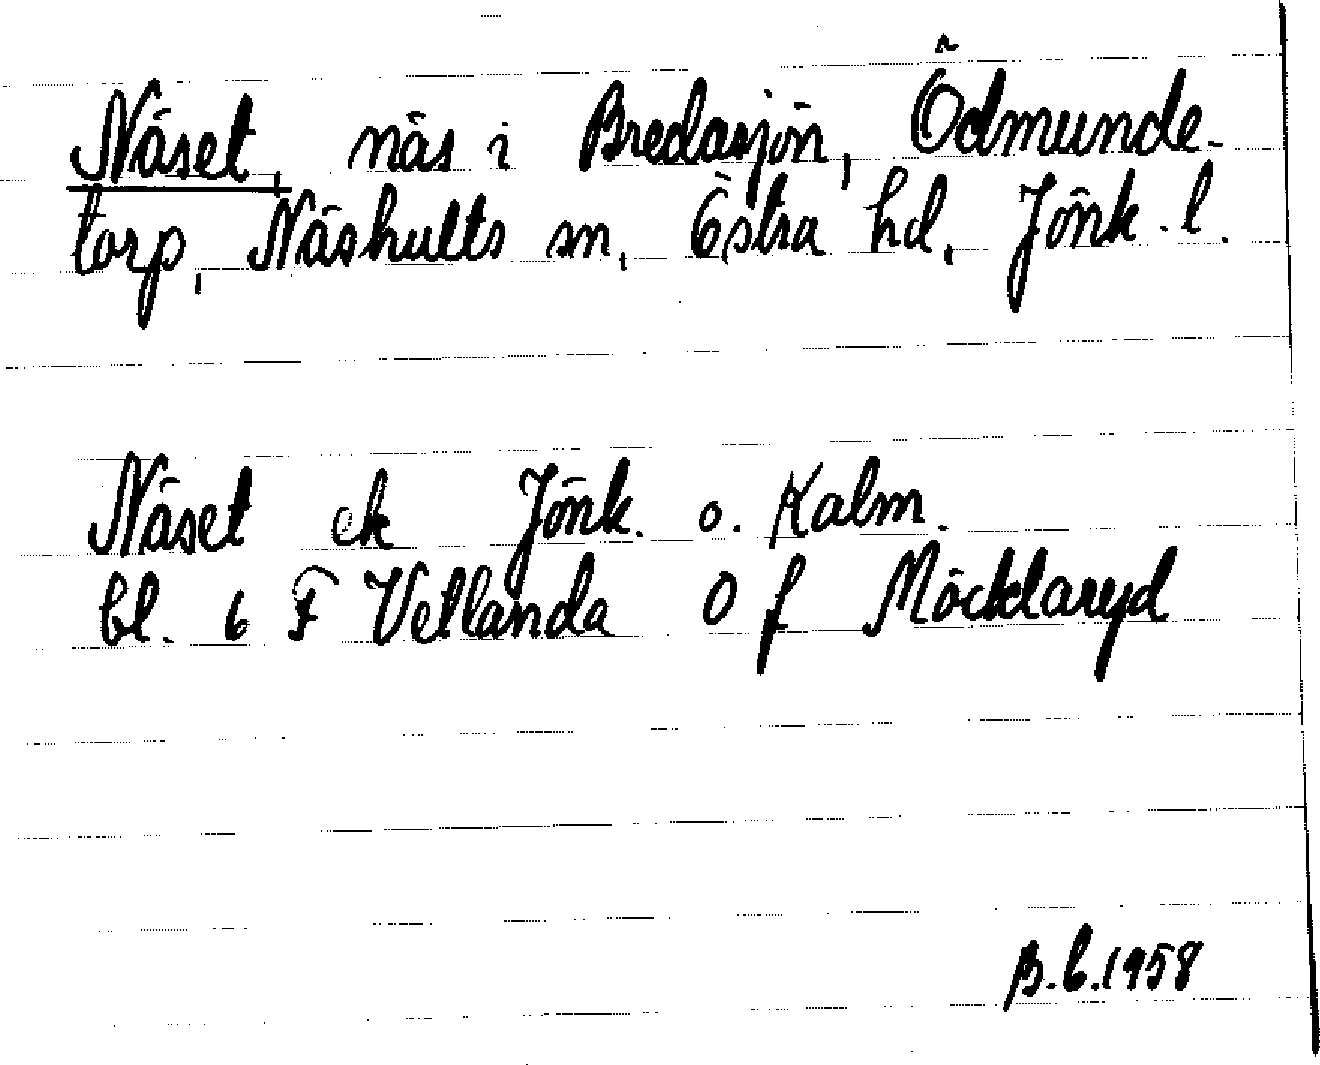 Näset, näs i Bredasjön, Ödmunde-
torp, Näshults sn, Östra hd, Jönk. l.
Näset ek Jönk. o. Kalm.
bl. 6 F Vetlanda O f Möcklaryd
B.b.1958